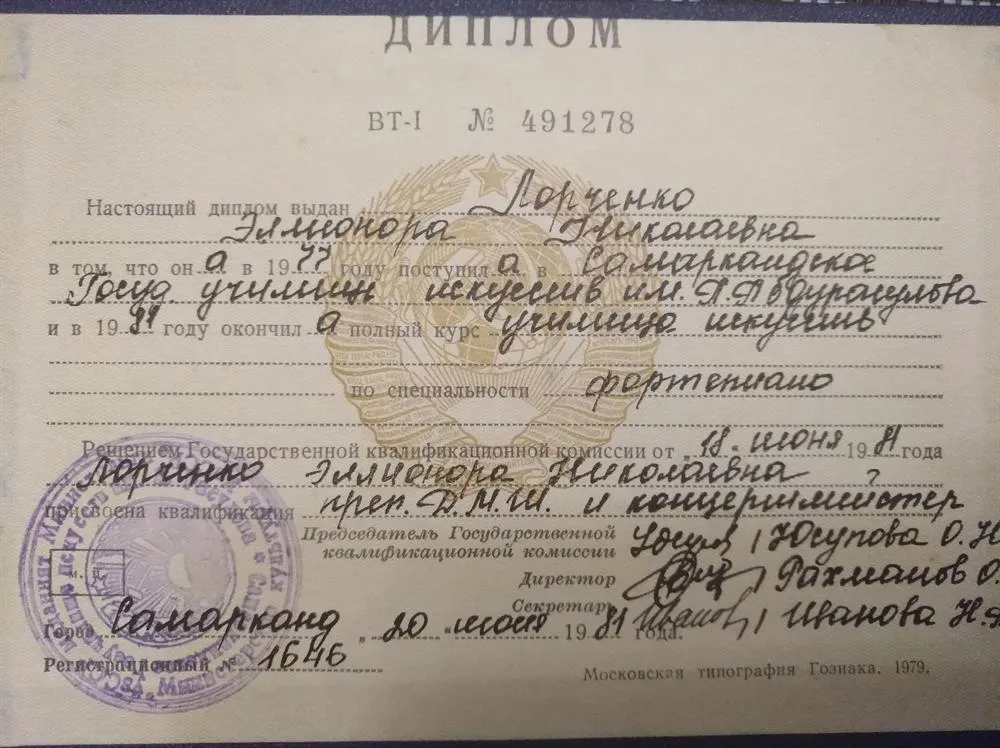 ДИПЛОМ
ВТ-I № 491278
Настоящий диплом выдан Лорченко
Элионора Николаевна
в том, что он а в 1977 году поступил а в Самаркандское
Госуд. училищ искусств им. А. Абдурасулова
и в 1981 году окончил а полный курс училища искусств
по специальности фортепиано
Решением Государственной квалификационной комиссии от „18" июня 1981 года
Лорченко Элионора Николаевна
присвоена квалификация преп. Д.М.Ш. и концертмейстер
Председатель Государственной
квалификационной комиссии / Юсупова О. Н
Директор / Рахманов О.
Секретарь / Иванова Н.
Город Самарканд „20" июня 1981 года.
Регистрационный № 1646
м. п.
Московская типография Гознака. 1979.